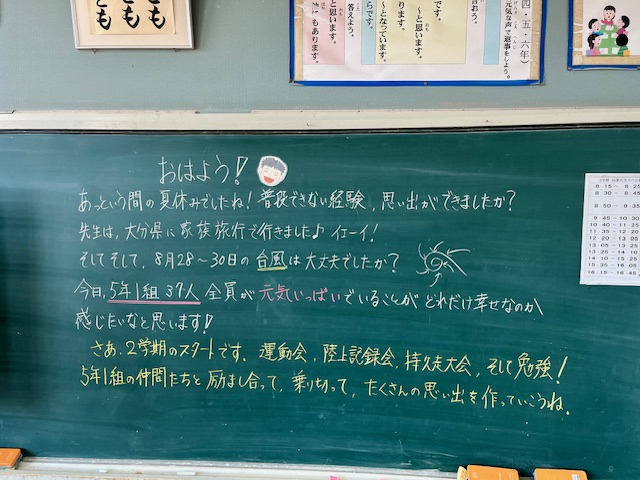 とも
とも
とも
四・五・六年)
元気な声で返事をしよう。
言おう。
〜と思います。
〜となっています。
らです。
答えよう。
と思います。
にもあります。
おはよう!
あっという間の夏休みでしたね!普段できない経験、思い出ができましたか?
先生は、大分県に家族旅行で行きました♪イエーイ!
そしてそして、8月28〜30日の台風は大丈夫でしたか?
今日、5年1組37人全員が元気いっぱいでいることがどれだけ幸せなのか
感じたいなと思います!
さあ、2学期のスタートです。運動会、陸上記録会、持久走大会、そして勉強!
5年1組の仲間たちと励まし合って、乗り切って、たくさんの思い出を作っていこうね。
8:15 - 8:25
8:30 - 8:45
8:50 - 9:35
9:45 - 10:30
10:40 - 11:25
11:35 - 12:20
12:20 - 13:05
13:05 - 13:25
13:25 - 13:40
13:45 - 14:30
14:35 - 15:20
15:25 - 15:35
15:35 - 16:05
16:15 - 16:45